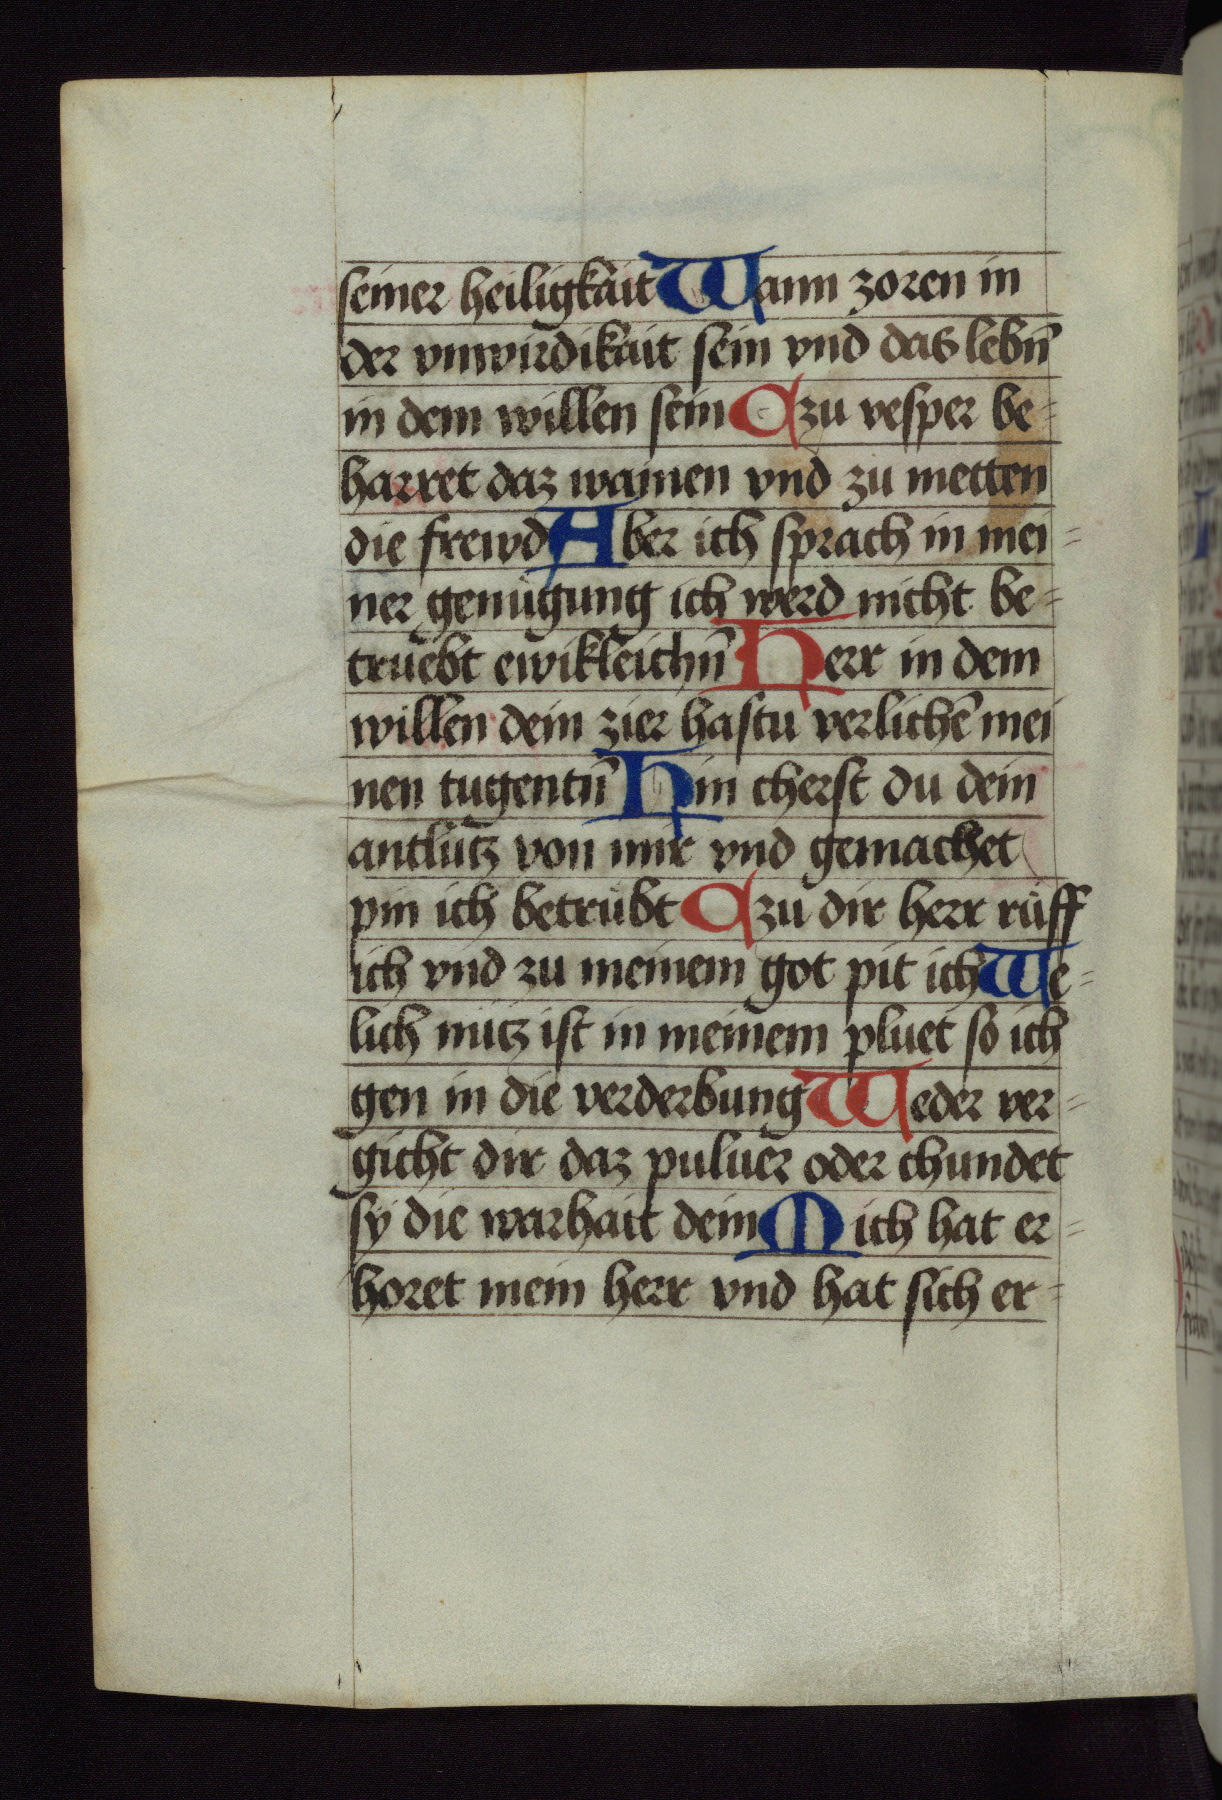 seiner heiligkait Wann zoren in
der vnwirdikait sein vnd das lebn̄
in dem willen sein zu vesper be=
harret daz wainen vnd zu metten
die frewd Aber ich sprach in mei=
ner genügung ich werd nicht be=
truebt ewikleichn̄ Herr in dem
willen dein zier hastu verlichē mei
nen tugentn̄ Hin cherst du dein
antlütz von mir vnd gemachet
pin ich betrübt zu dir herr rüff
ich vnd zu meinem got pit ich We=
lich nütz ist in meinem pluet so ich
gen in die verderbung Weder ver=
gicht dir daz puluer oder chundet
sÿ die warhait dein Mich hat er=
horet mein herr vnd hat sich er=